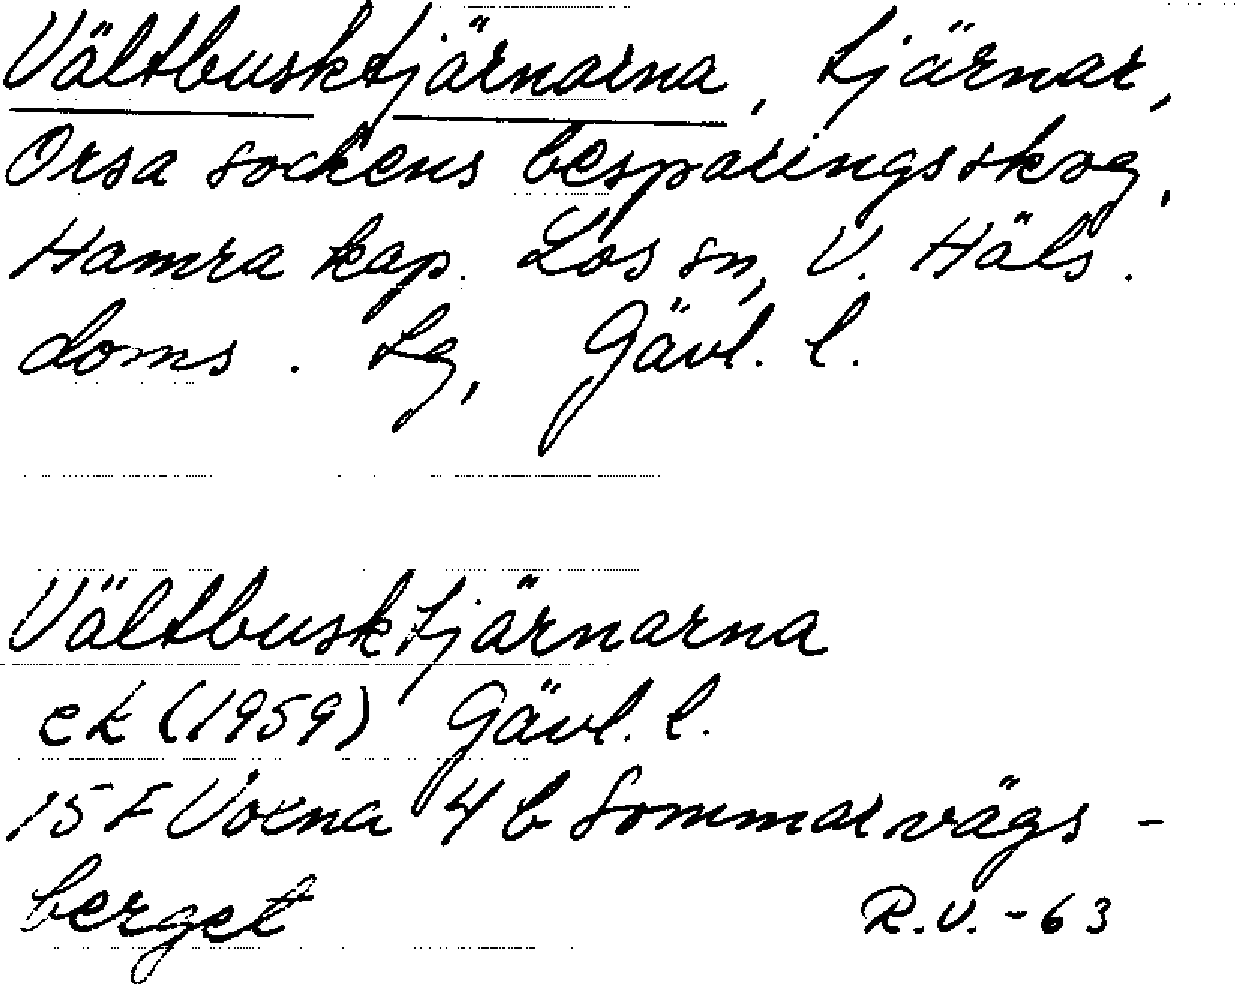 Vältbusktjärnarna, tjärnar,
Orsa sockens besparingsskog,
Hamra kap. Los sn, V. Häls.
doms. tg, Gävl. l.
Vältbusktjärnarna
ek (1959) Gävl. l.
15 F Voxna 4 b Sommarvägs-
berget R.V. -63